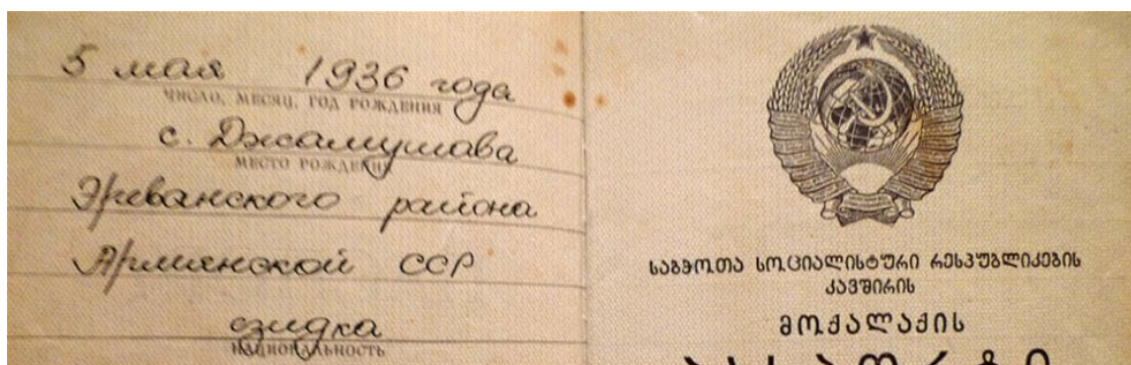 5 мая 1936 года
ЧИСЛО, МЕСЯЦ, ГОД РОЖДЕНИЯ
с. Джамушава
МЕСТО РОЖДЕНИЯ
Эреванского района
Армянской ССР
езидка
НАЦИОНАЛЬНОСТЬ
საბჭოთა სოციალისტური რესპუბლიკების
კავშირის
მოქალაქის